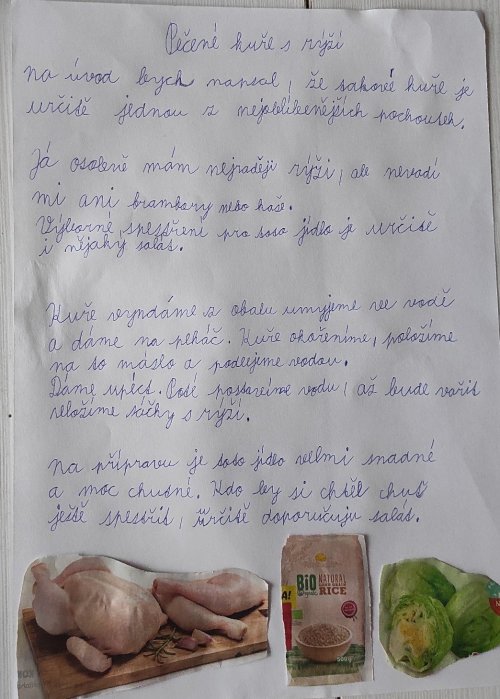 Pečené kuře s rýží
na úvod bych napsal, že takové kuře je
určitě jednou z nejoblíbenějších pochoutek.
Já osobně mám nejraději rýži, ale nevadí
mi ani brambory nebo kaše.
Výborné spestření pro toto jídlo je určitě
i nějaký salát.
Kuře vyndáme z obalu umyjeme ve vodě
a dáme na pekáč. Kuře okořeníme, položíme
na to máslo a podlijeme vodou.
Dáme upéct. Poté postavíme vodu, až bude vařit
vložíme sáčky s rýží.
na přípravu je toto jídlo velmi snadné
a moc chutné. Kdo by si chtěl chuť
ještě spestřit, určitě doporučuju salát.
BIO
NATURAL
RICE
500g